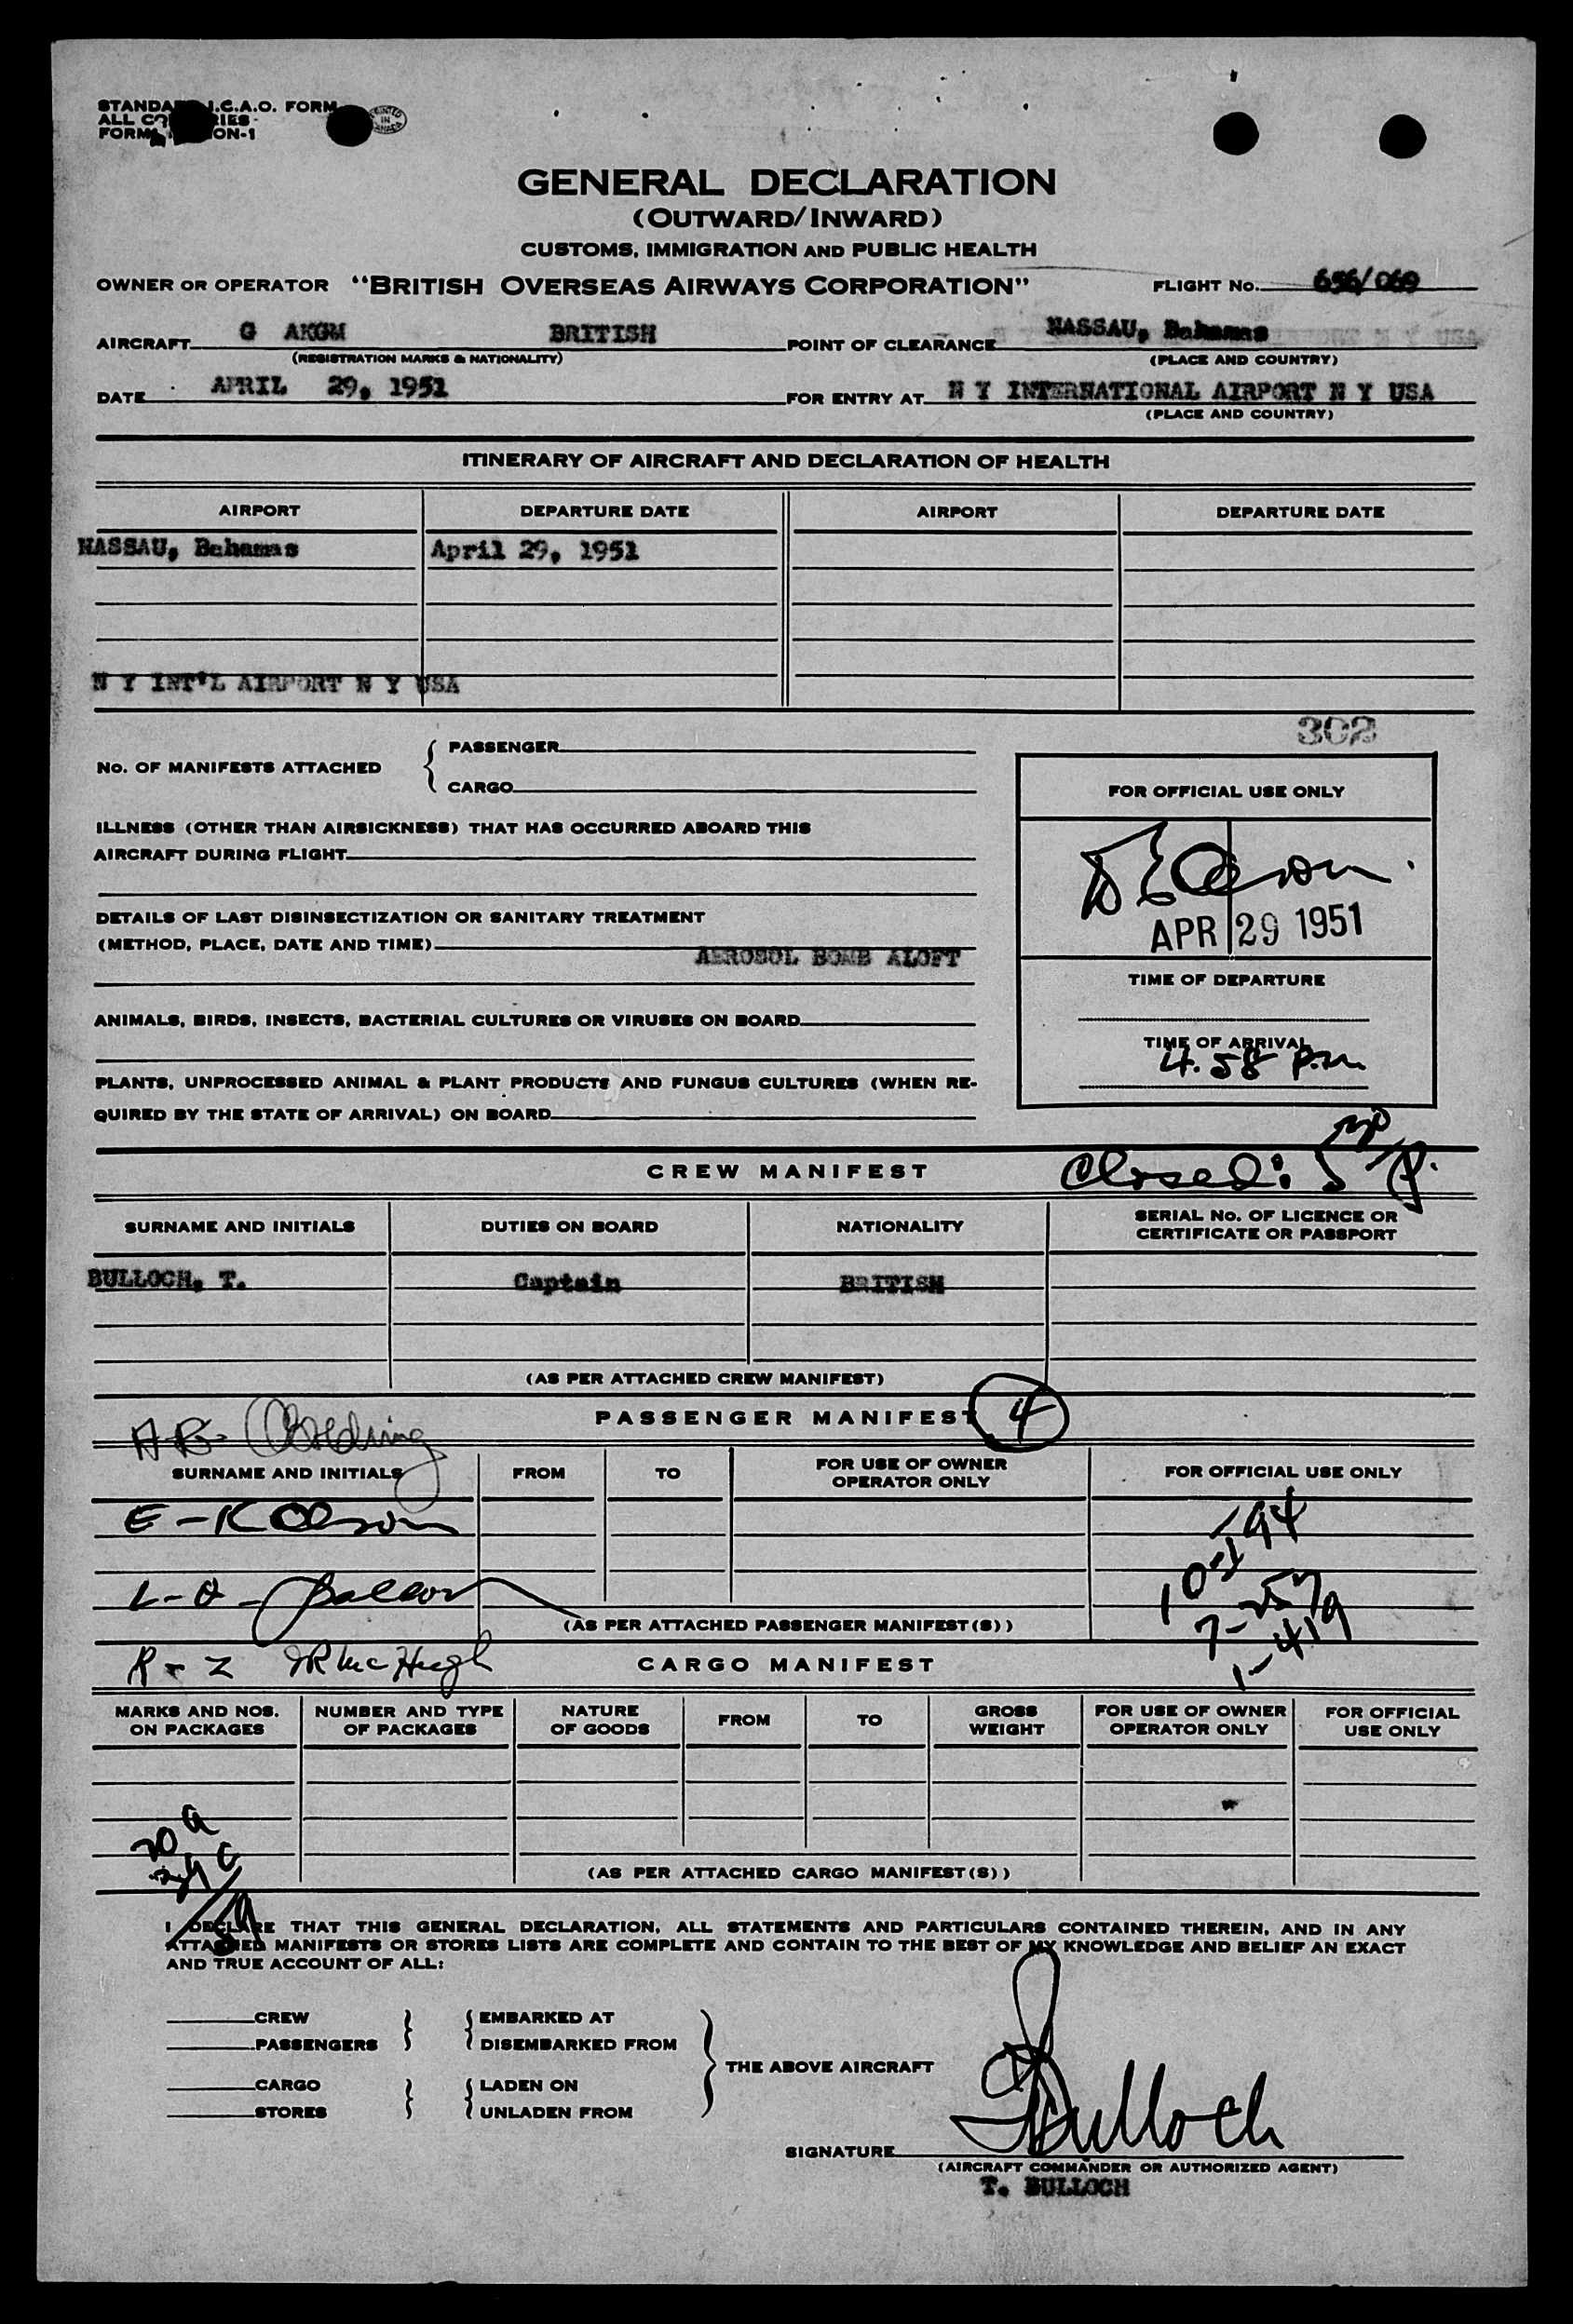 STANDARD I.C.A.O. FORM
ALL COUNTRIES
FORM ON-1
PRINTED IN CANADA
GENERAL DECLARATION
(OUTWARD/INWARD)
CUSTOMS, IMMIGRATION AND PUBLIC HEALTH
OWNER OR OPERATOR "BRITISH OVERSEAS AIRWAYS CORPORATION" FLIGHT No. 656/069
AIRCRAFT G AKGM BRITISH POINT OF CLEARANCE NASSAU, Bahamas
(REGISTRATION MARKS & NATIONALITY) (PLACE AND COUNTRY)
DATE APRIL 29, 1951 FOR ENTRY AT N Y INTERNATIONAL AIRPORT N Y USA
(PLACE AND COUNTRY)
ITINERARY OF AIRCRAFT AND DECLARATION OF HEALTH
AIRPORT DEPARTURE DATE AIRPORT DEPARTURE DATE
NASSAU, Bahamas April 29, 1951
N Y INT'L AIRPORT N Y USA
302
No. OF MANIFESTS ATTACHED { PASSENGER
CARGO
FOR OFFICIAL USE ONLY
ILLNESS (OTHER THAN AIRSICKNESS) THAT HAS OCCURRED ABOARD THIS
AIRCRAFT DURING FLIGHT
APR 29 1951
DETAILS OF LAST DISINSECTIZATION OR SANITARY TREATMENT
(METHOD, PLACE, DATE AND TIME) AEROSOL BOMB ALOFT
TIME OF DEPARTURE
ANIMALS, BIRDS, INSECTS, BACTERIAL CULTURES OR VIRUSES ON BOARD
TIME OF ARRIVAL
4.58 p.m
PLANTS, UNPROCESSED ANIMAL & PLANT PRODUCTS AND FUNGUS CULTURES (WHEN RE-
QUIRED BY THE STATE OF ARRIVAL) ON BOARD
CREW MANIFEST Closed:
SURNAME AND INITIALS DUTIES ON BOARD NATIONALITY SERIAL No. OF LICENCE OR
CERTIFICATE OR PASSPORT
BULLOCH, T. Captain BRITISH
(AS PER ATTACHED CREW MANIFEST)
PASSENGER MANIFEST 4
A-B-
SURNAME AND INITIALS FROM TO FOR USE OF OWNER
OPERATOR ONLY FOR OFFICIAL USE ONLY
E-K Olson
L-Q-
(AS PER ATTACHED PASSENGER MANIFEST(S))
R-Z McHugh
CARGO MANIFEST
MARKS AND NOS.
ON PACKAGES NUMBER AND TYPE
OF PACKAGES NATURE
OF GOODS FROM TO GROSS
WEIGHT FOR USE OF OWNER
OPERATOR ONLY FOR OFFICIAL
USE ONLY
(AS PER ATTACHED CARGO MANIFEST(S))
I DECLARE THAT THIS GENERAL DECLARATION, ALL STATEMENTS AND PARTICULARS CONTAINED THEREIN, AND IN ANY
ATTACHED MANIFESTS OR STORES LISTS ARE COMPLETE AND CONTAIN TO THE BEST OF MY KNOWLEDGE AND BELIEF AN EXACT
AND TRUE ACCOUNT OF ALL:
CREW EMBARKED AT
PASSENGERS DISEMBARKED FROM
THE ABOVE AIRCRAFT
CARGO LADEN ON
STORES UNLADEN FROM
SIGNATURE T Bulloch
(AIRCRAFT COMMANDER OR AUTHORIZED AGENT)
T. BULLOCH